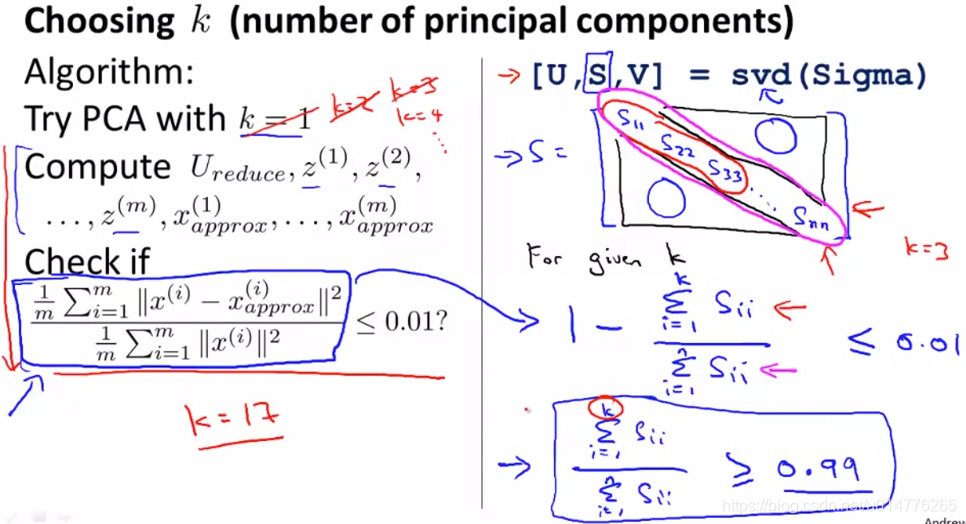 Choosing k (number of principal components)
Algorithm:
Try PCA with k = 1 k=2 k=3
k=4
⋮
Compute U_reduce, z^(1), z^(2),
..., z^(m), x_approx^(1), ..., x_approx^(m)
Check if
\frac{\frac{1}{m} \sum_{i=1}^{m} ‖x^(i) − x_approx^(i)‖^2}{\frac{1}{m} \sum_{i=1}^{m} ‖x^(i)‖^2} ≤ 0.01?
k = 17
→ [U,S,V] = svd(Sigma)
→ S =
S_11
S_22
S_33
...
S_nn
k=3
For given k
1 − \frac{\sum_{i=1}^{k} S_ii}{\sum_{i=1}^{n} S_ii} ≤ 0.01
→ \frac{\sum_{i=1}^{k} S_ii}{\sum_{i=1}^{n} S_ii} ≥ 0.99
Andrew